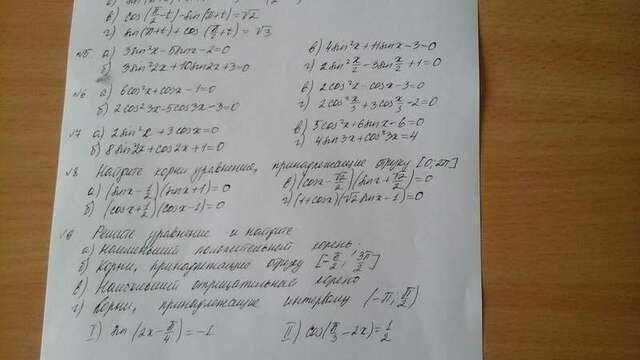 в) cos(π/2 - t) - sin(π + t) = √2
г) sin(π+t) + cos(π/2 + t) = √3
№5. а) 3sin²x - 5sinx - 2 = 0 в) 4sin²x + 11sinx - 3 = 0
б) 3sin²2x + 10sin2x + 3 = 0 г) 2sin² x/2 - 3sin x/2 + 1 = 0
№6 а) 6cos²x + cosx - 1 = 0 в) 2cos²x - cosx - 3 = 0
б) 2cos²3x - 5cos3x - 3 = 0 г) 2cos² x/3 + 3cos x/3 - 2 = 0
№7 а) 2sin²x + 3cosx = 0 в) 5cos²x + 6sinx - 6 = 0
б) 8sin²2x + cos2x + 1 = 0 г) 4sin3x + cos²3x = 4
№8 Найдите корни уравнения, принадлежащие отрезку [0; 2π]
а) (sinx - 1/2)(sinx + 1) = 0 в) (cosx - √2/2)(sinx + √2/2) = 0
б) (cosx + 1/2)(cosx - 1) = 0 г) (1 + cosx)(√2 sinx - 1) = 0
№9 Решите уравнение и найдите:
а) наименьший положительный корень.
б) Корни, принадлежащие отрезку [-π/2; 3π/2]
в) Наибольший отрицательный корень
г) корни, принадлежащие интервалу (-π; π/2)
I) sin(2x - π/4) = -1 II) cos(π/3 - 2x) = 1/2